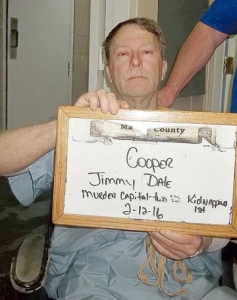 Ma County
Cooper
Jimmy Dale
Murder Capital - two Kidnapping
1st
2-12-16